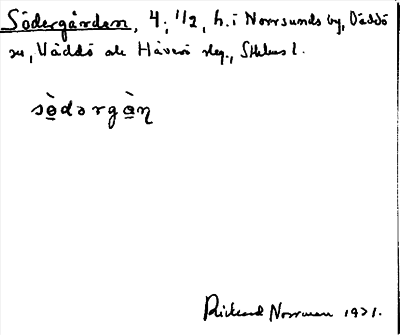 Södergården, 4; 1/2, h. i Norrsunds by, Väddö
sn, Väddö och Häverö slg., Sthlms l.
sö̀dərgå̀ṇ
Rickard Norrman 1931.